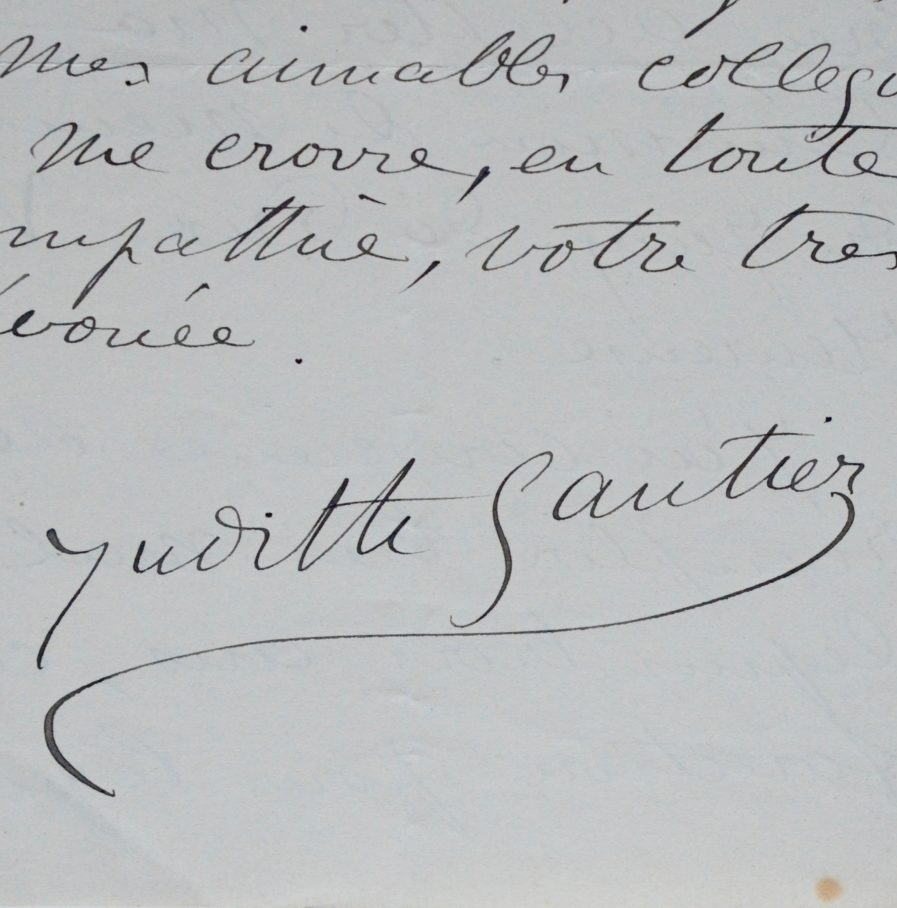 mes aimables collegu
me croire, en toute
mpathie, votre tres
évouée.
Judith Gautier